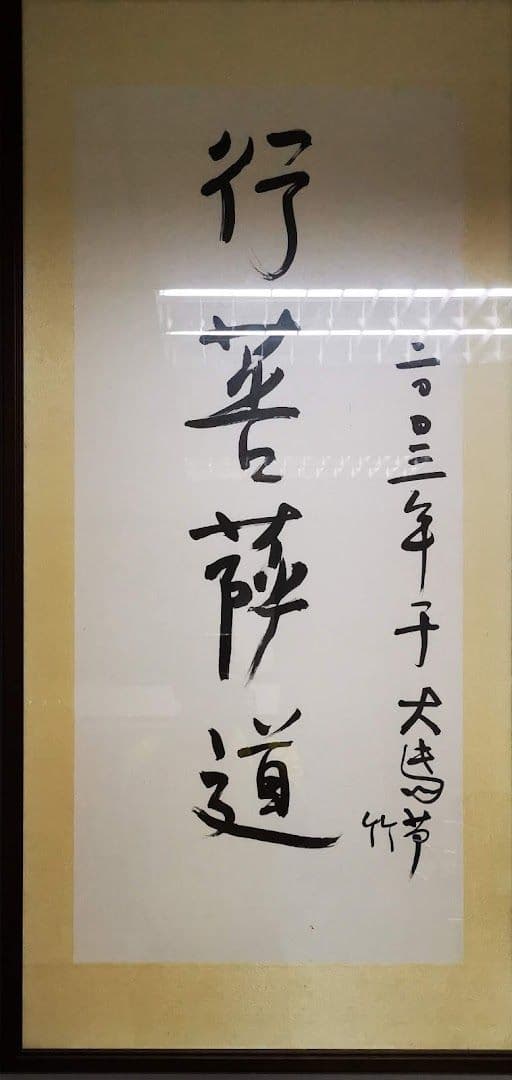 行菩薩道
二〇〇三年于大馬
竹